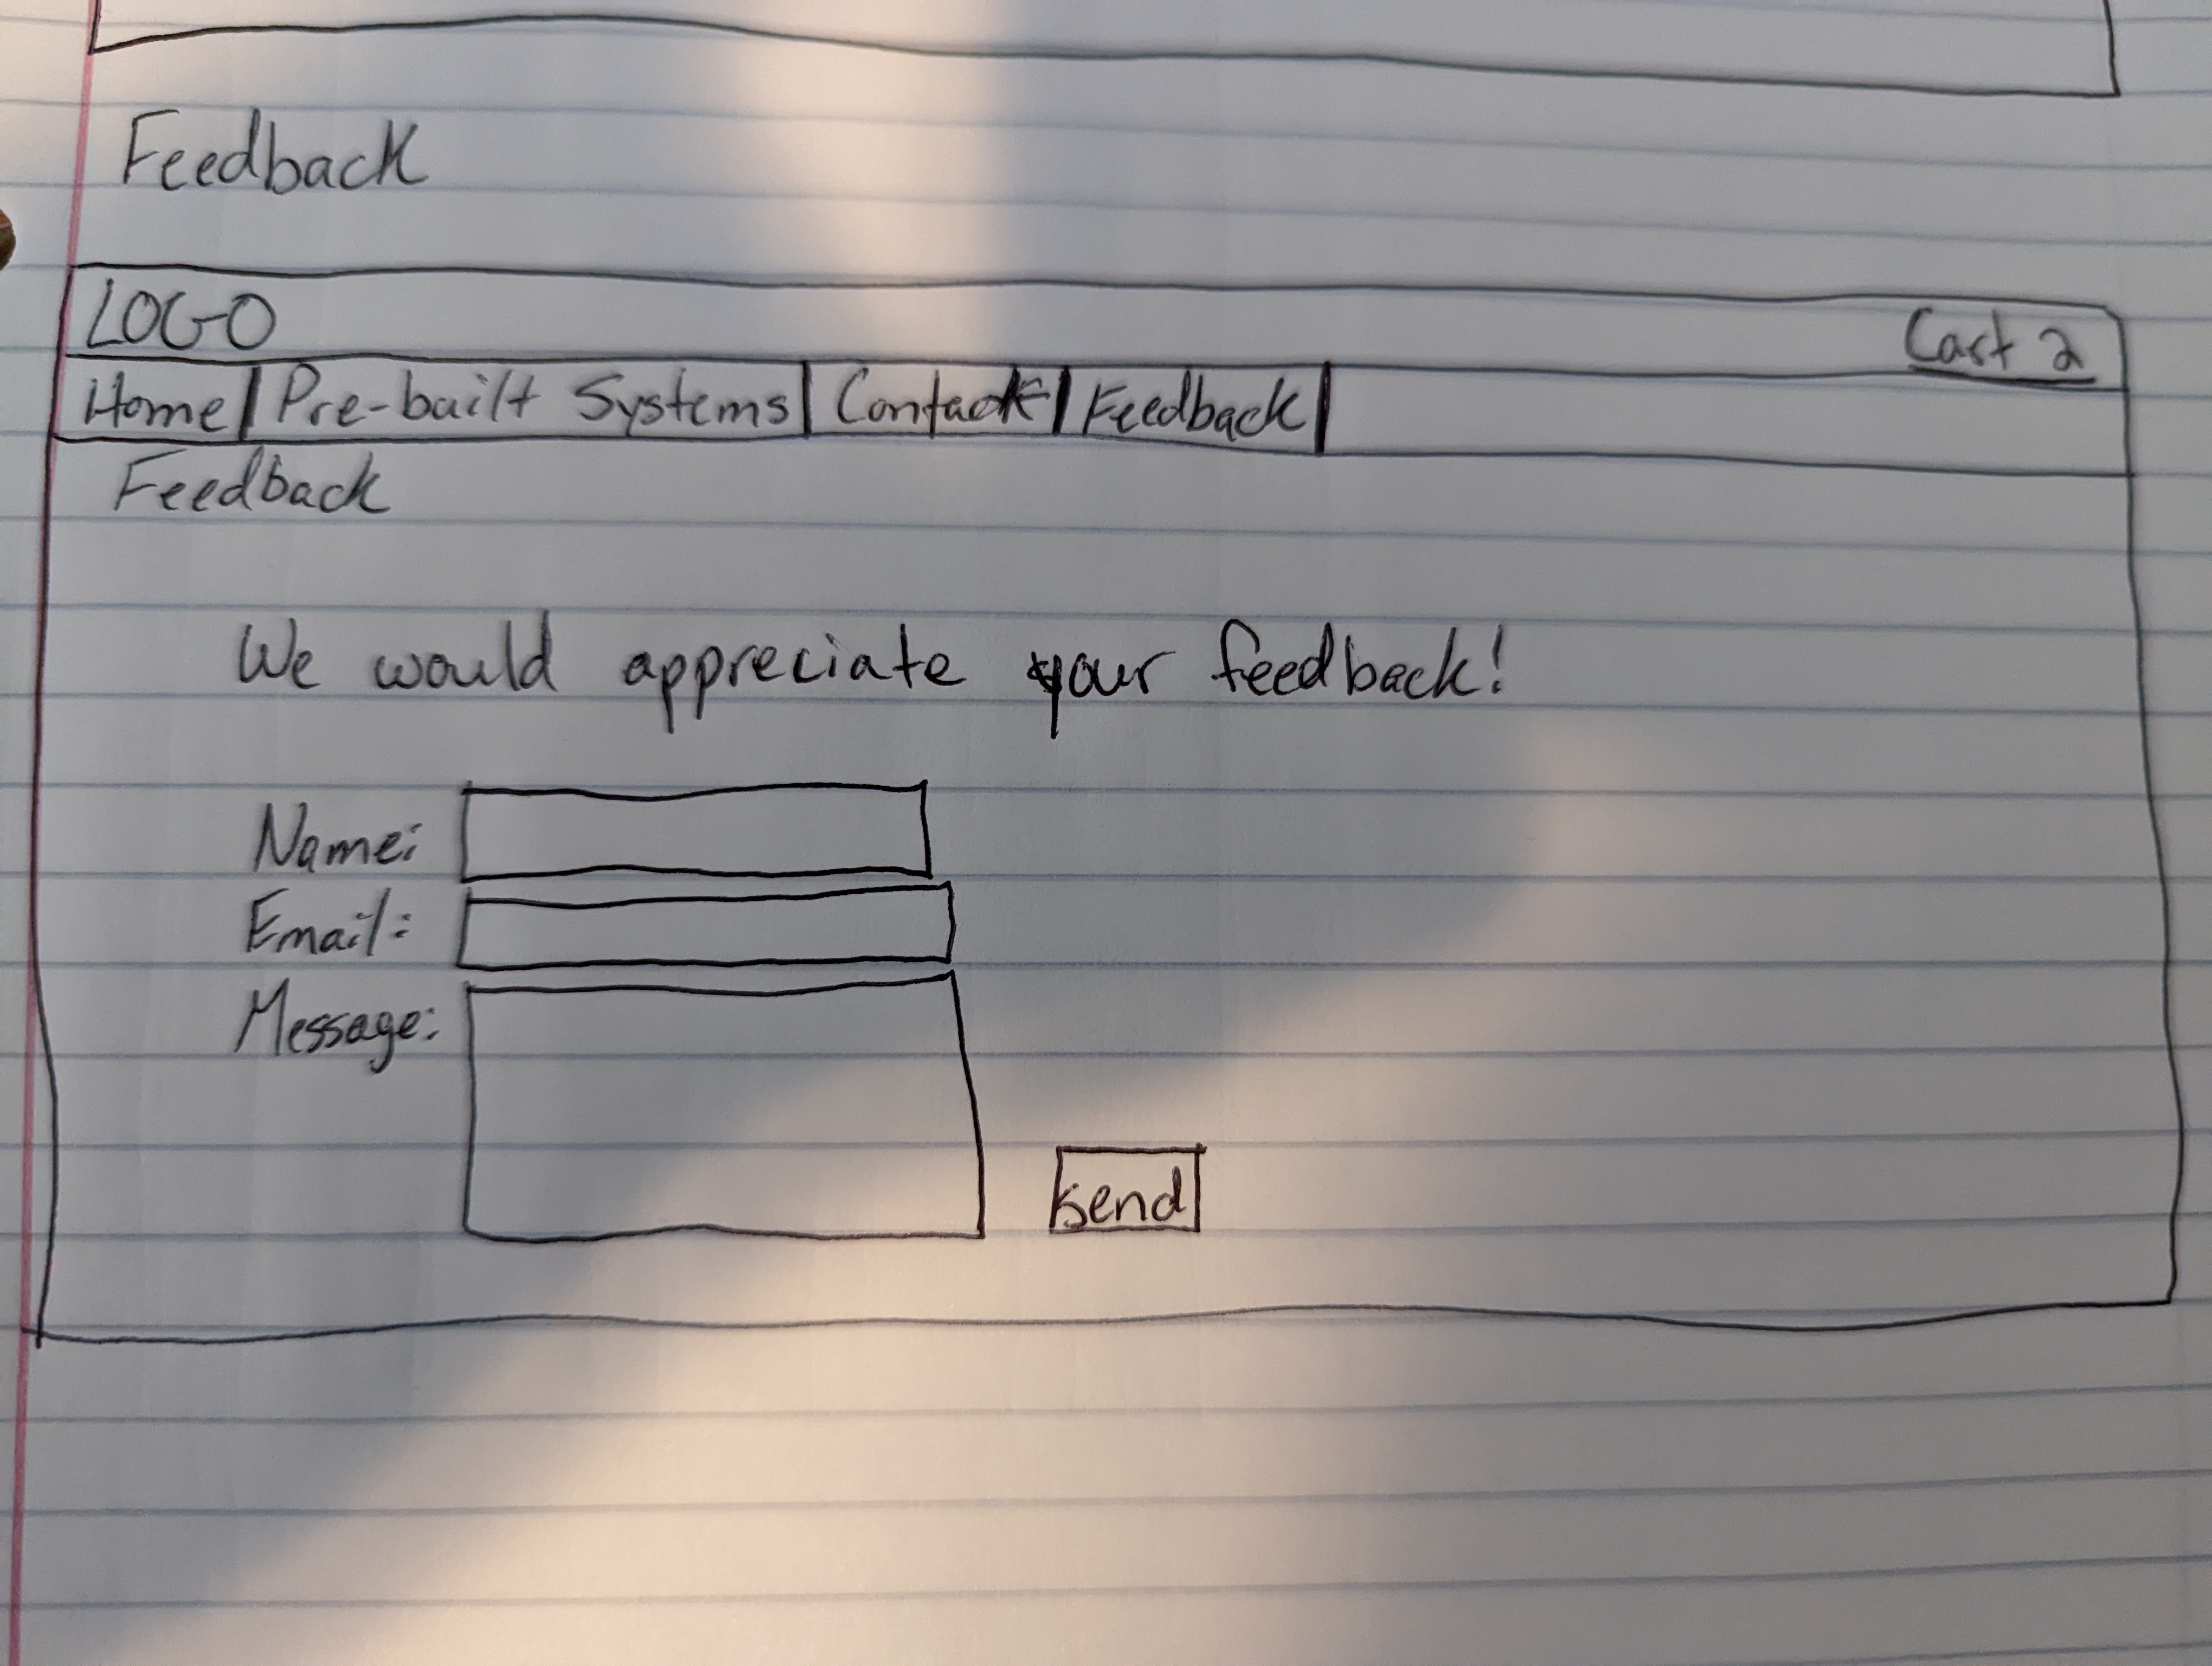 Feedback
LOGO
Cart 2
Home Pre-built Systems Contact Feedback
Feedback
We would appreciate your feedback!
Name:
Email:
Message:
Send